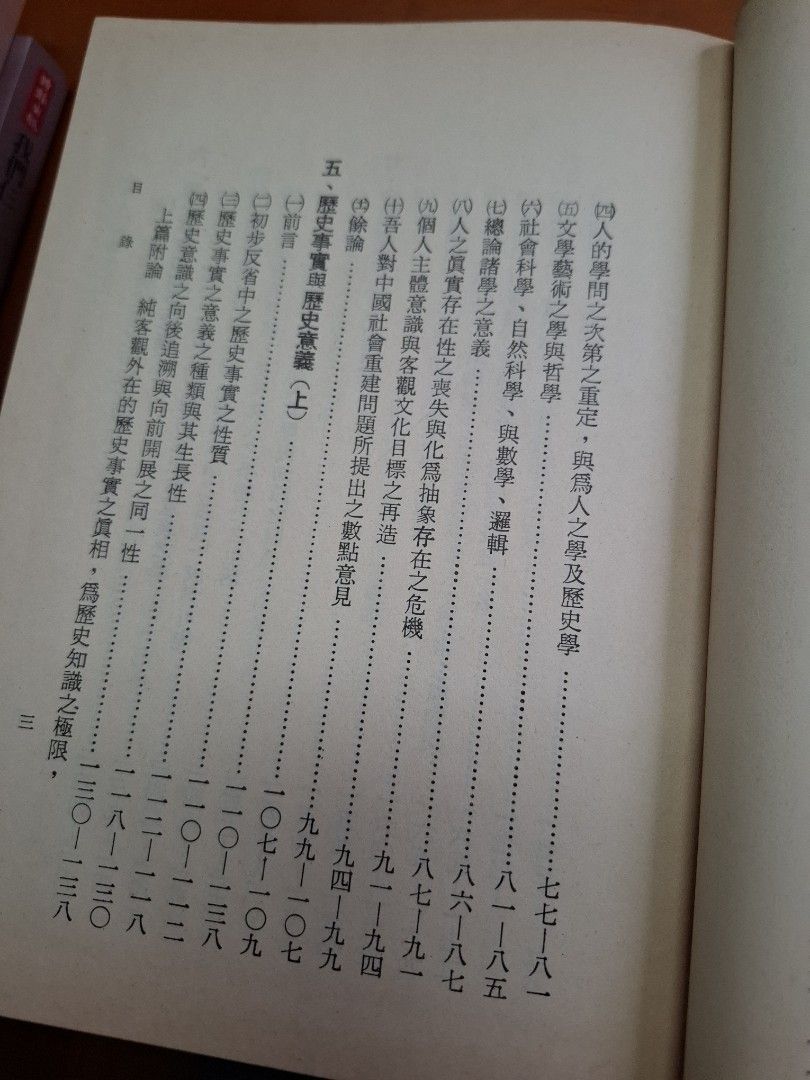 ㈣人的學問之次第之重定，與爲人之學及歷史學……七七—八一
㈤文學藝術之學與哲學……八一—八五
㈥社會科學、自然科學、與數學、邏輯……八六—八七
㈦總論諸學之意義……八七—九一
㈧人之眞實存在性之喪失與化爲抽象存在之危機……九一—九四
㈨個人主體意識與客觀文化目標之再造……九四—九九
㈩吾人對中國社會重建問題所提出之數點意見……九九—一〇七
(十一)餘論……一〇七—一〇九
五、歷史事實與歷史意義（上）……一一〇—一三八
㈠前言……一一〇—一一二
㈡初步反省中之歷史事實之性質……一一二—一一八
㈢歷史事實之意義之種類與其生長性……一一八—一三〇
㈣歷史意識之向後追溯與向前開展之同一性……一三〇—一三八
上篇附論 純客觀外在的歷史事實之眞相，爲歷史知識之極限，
目錄
三
我們